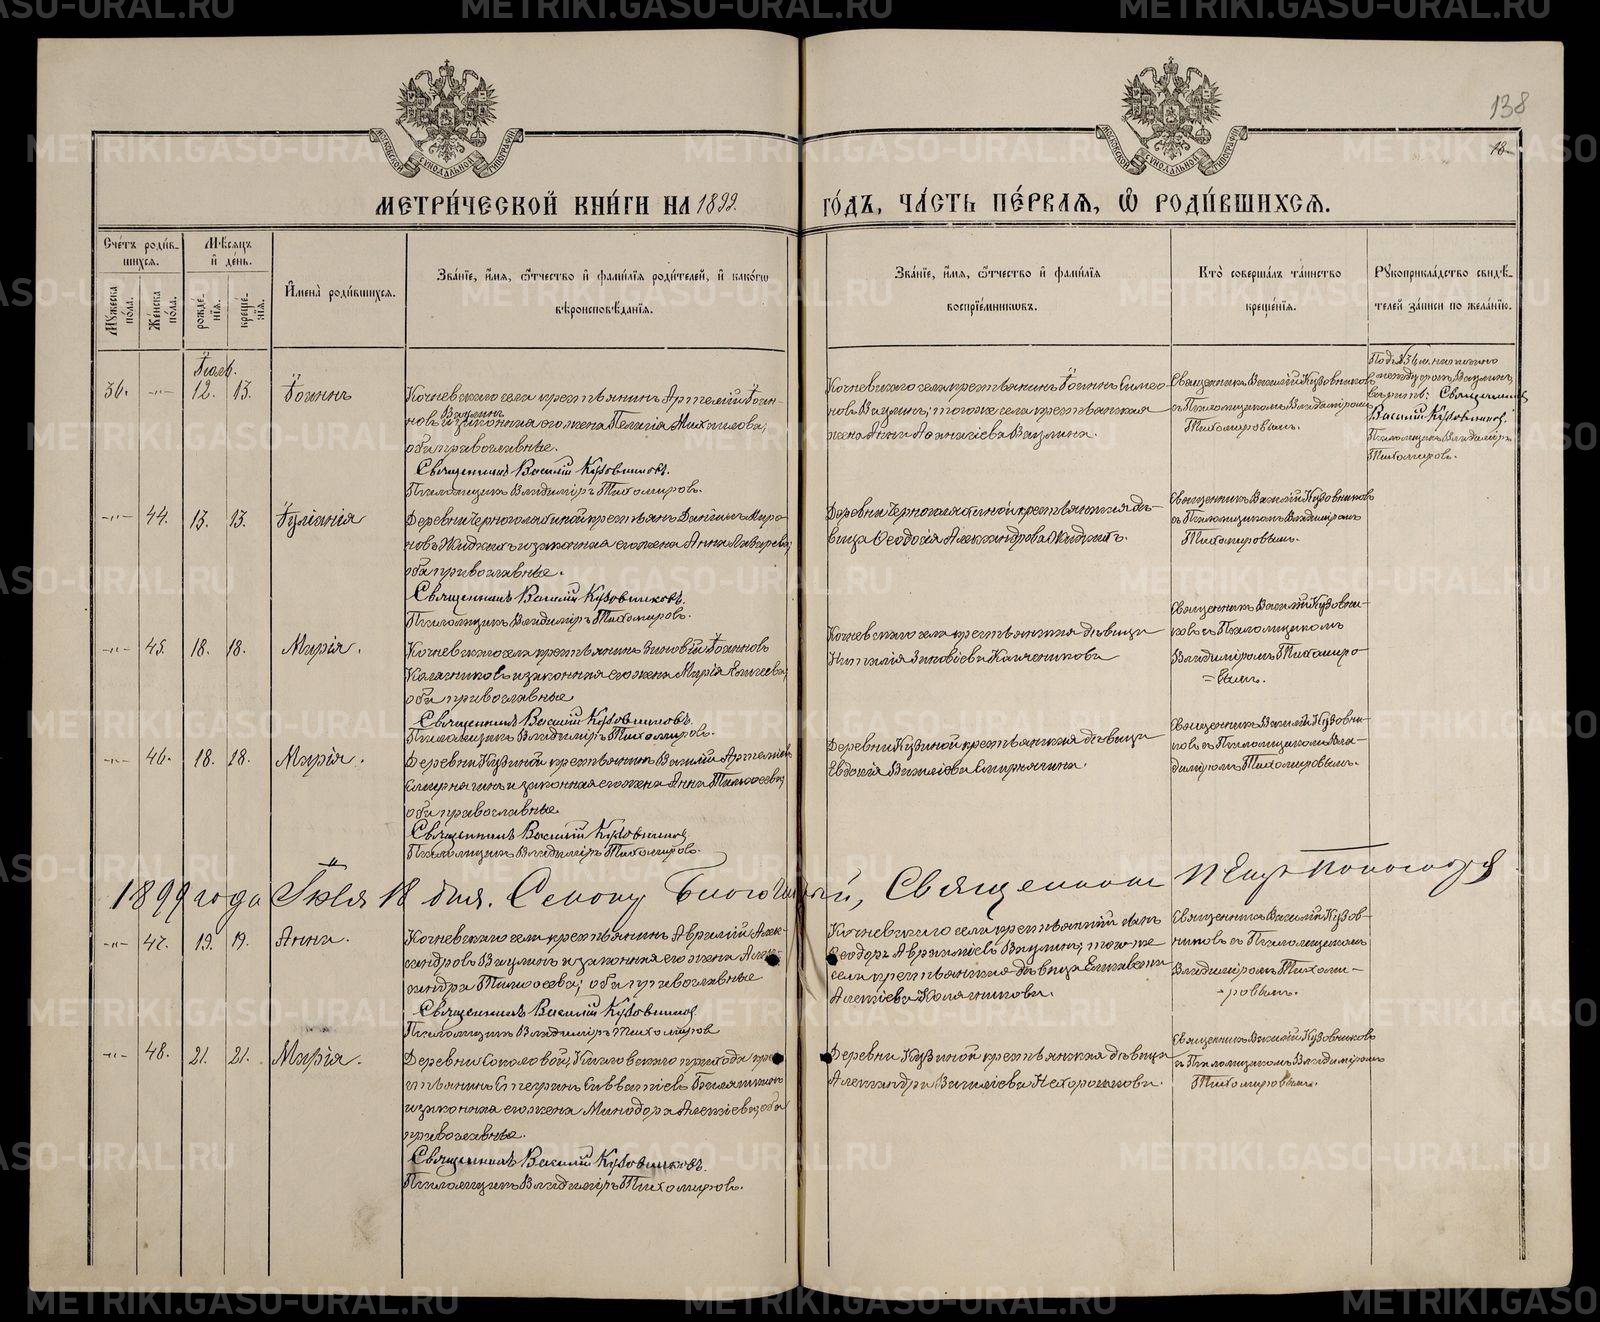 138
18
МОСКОВСКОЙ СУНОДАЛЬНОЙ ТИПОГРАФІИ
МЕТРИ́ЧЕСКОЙ КНИ́ГИ НА 1899.
ГО́ДЪ, ЧА́СТЬ ПЕ́РВАЯ, Ѽ РОДИ́ВШИХСЯ.
Сче́тъ роди́в-
шихся.
Мѣ́сяцъ
и де́нь.
Мꙋжеска по́ла.
Же́нска по́ла.
рожде́-
нїя.
креще́-
нїя.
Имена̀ роди́вшихся.
Зва́нїе, и́мя, ѻ҆́тчество и фами́лїя роди́телей, и како́гѡ
вѣроисповѣ́данїя.
Зва́нїе, и́мя, ѻ҆́тчество и фами́лїя
воспрїе́мникѡвъ.
Кто̀ соверша́лъ та́инство
креще́нїя.
Рꙋкоприкла́дство свидѣ́-
телей за́писи по жела́нїю.
Іюль.
36. -"- 12. 13. Іоаннъ
Кочневскаго села крестьянинъ Артемій Іоан-
новъ Ваулинъ и законная его жена Пелагія Михаилова;
оба православные.
Священникъ Василій Кузовниковъ.
Псаломщикъ Владиміръ Тихомировъ.
Кочневскаго села крестьянинъ Іоаннъ Симео-
новъ Ваулинъ; того же села крестьянская
жена Анна Аѳанасіева Ваулина.
Священникъ Василій Кузовниковъ
съ Псаломщикомъ Владиміромъ
Тихомировымъ.
Священникъ
Василій Кузовниковъ.
Псаломщикъ Владиміръ
Тихомировъ.
-"- 44. 13. 13. Іуліанія
крестьян Миро-
новъ и законная его жена Анна Лазарева;
оба православные.
Священникъ Василій Кузовниковъ.
Псаломщикъ Владиміръ Тихомировъ.
Деревни крестьянская дѣ-
вица Ѳеодосія Александрова
Священникъ Василій Кузовниковъ
съ Псаломщикомъ Владиміромъ
Тихомировымъ.
-"- 45. 18. 18. Марія.
Кочневскаго села крестьянинъ Зиновій Іоанновъ
и законная его жена Марія
оба православные
Священникъ Василій Кузовниковъ.
Псаломщикъ Владиміръ Тихомировъ.
Кочневскаго села крестьянская дѣвица
Наталія Зиновіева
Священникъ Василій Кузовни-
ковъ съ Псаломщикомъ
Владиміромъ Тихомиро-
=вымъ.
-"- 46. 18. 18. Марія.
Деревни Кузиной крестьянинъ Василій Артеміевъ
Смирнягинъ и законная его жена Анна Тимоѳеева;
оба православные
Священникъ Василій Кузовниковъ.
Псаломщикъ Владиміръ Тихомировъ.
Деревни Кузиной крестьянская дѣвица
Евдокія Василіева Смирнягина.
Священникъ Василій Кузовни-
ковъ съ Псаломщикомъ Вла-
диміромъ Тихомировымъ.
1899 года Іюля 18 дня. Благочинный, Священникъ Петръ
-"- 47. 19. 19. Анна.
Кочневскаго села крестьянинъ Авраамій Алек-
сандровъ Ваулинъ и законная его жена Алек-
сандра Тимоѳеева; оба православные
Священникъ Василій Кузовниковъ
Псаломщикъ Владиміръ Тихомировъ
Кочневскаго села крестьянскій сынъ
Ѳеодоръ Авраамievъ Ваулинъ; того же
села крестьянская дѣвица Елизавета
Алексіева
Священникъ Василій Кузов-
никовъ съ Псаломщикомъ
Владиміромъ Тихоми-
-ровымъ.
-"- 48. 21. 21. Марія.
Деревни Соколовой, прихода кре-
стьянинъ Савватіевъ
и законная его жена Минодора Алексіева; оба
православные.
Священникъ Василій Кузовниковъ.
Псаломщикъ Владиміръ Тихомировъ.
Деревни Кузиной крестьянская дѣвица
Александра Василіева Нехорошкова.
Священникъ Василій Кузовниковъ
съ Псаломщикомъ Владиміромъ
Тихомировымъ.
METRIKI.GASO-URAL.RU